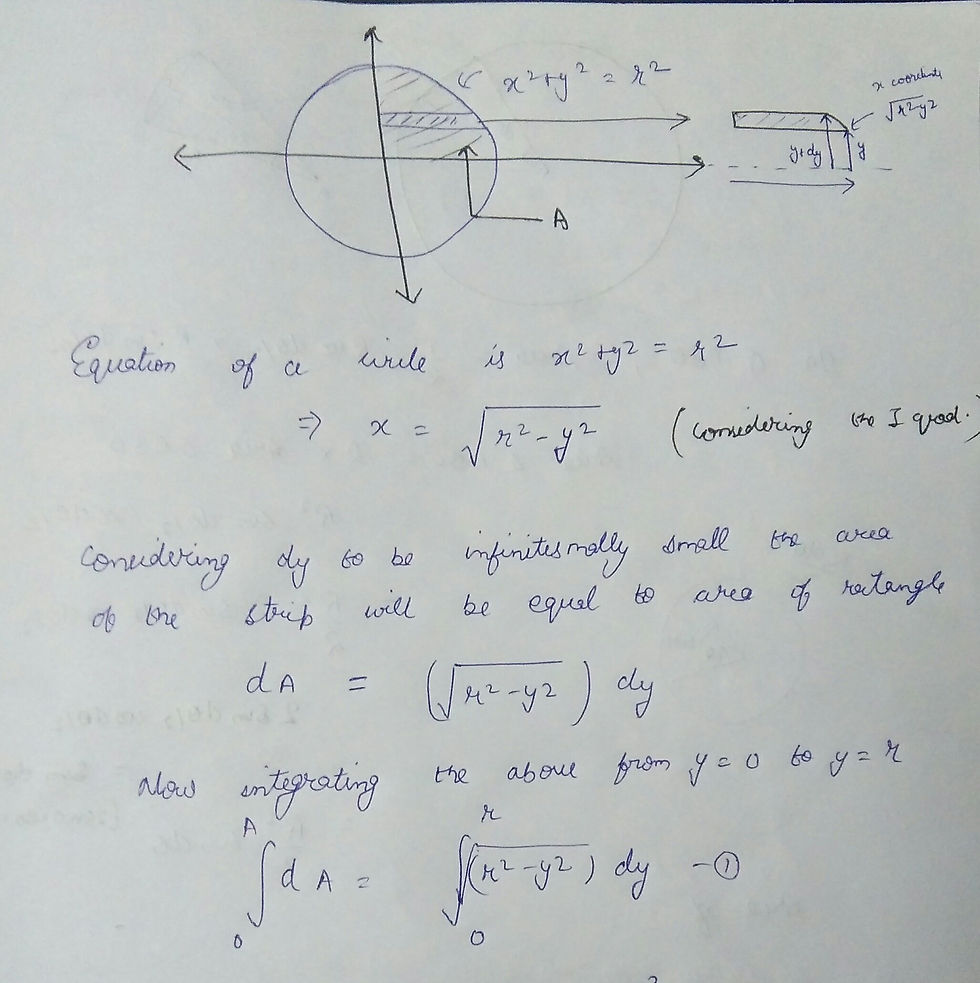 x² + y² = r²
x coordinate
√r²y2
y+dy
y
A
Equation of a circle is x² + y² = r²
⇒ x = √r² - y² (considering the I quad.
Considering dy to be infinitesmally small the area
of the strip will be equal to area of rectangle
dA = (√r² - y²) dy
Now integrating the above from y = 0 to y = r
∫₀ᴬ dA = ∫₀ʳ √(r² - y²) dy - ①